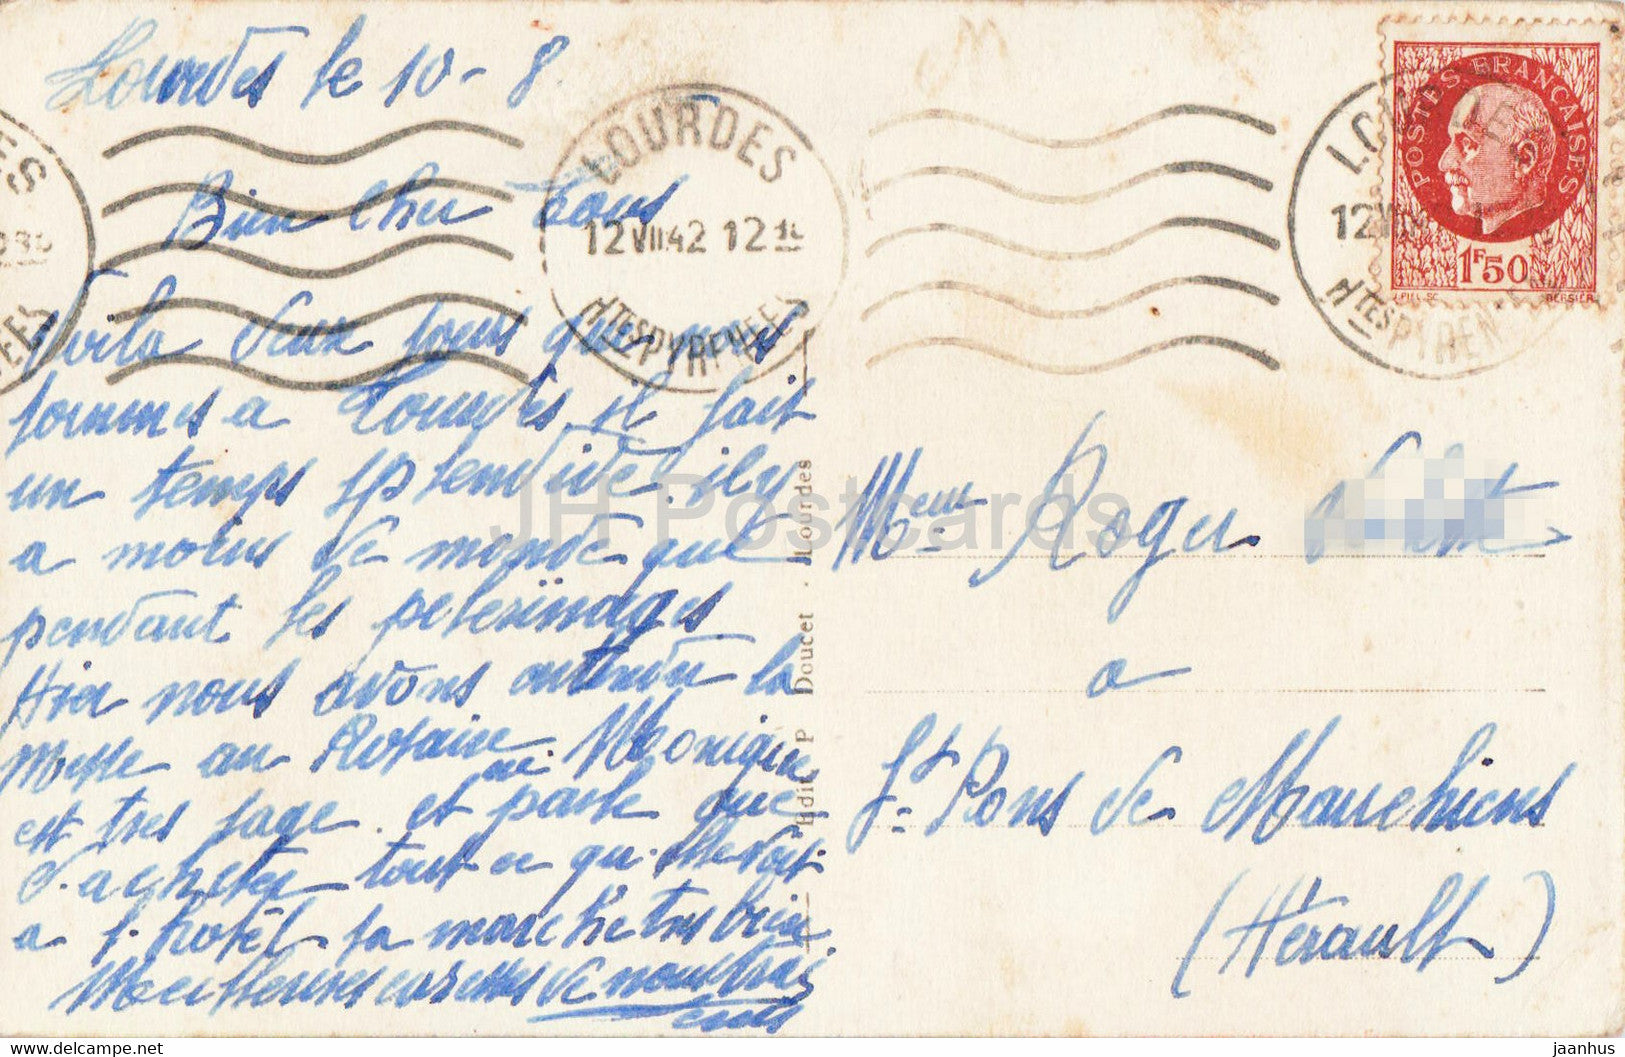 Lourdes le 10 - 8
LOURDES
12 VIII 42 12
HTES PYRENEES
Bien Cher tous
Voila deux jours que nous
sommes a Lourdes, il fait
un temps splendide. il y
a moins de monde que
pendant les pelerinages
Hier nous avons entendu la
Messe au Rosaire Monique
est tres sage. et parle que
d'acheter tout ce qu'elle voit.
a l'hotêl sa marche tres bien
Meilleures caresses de nous trois
POSTES FRANÇAISES
1F50
J. PIEL. SC.
BERSIER
Edit P Doucet . Lourdes
Roger
a
St Pons de Mauchiens
(Hérault)
JH Postcards
delcampe.net
jaanhus